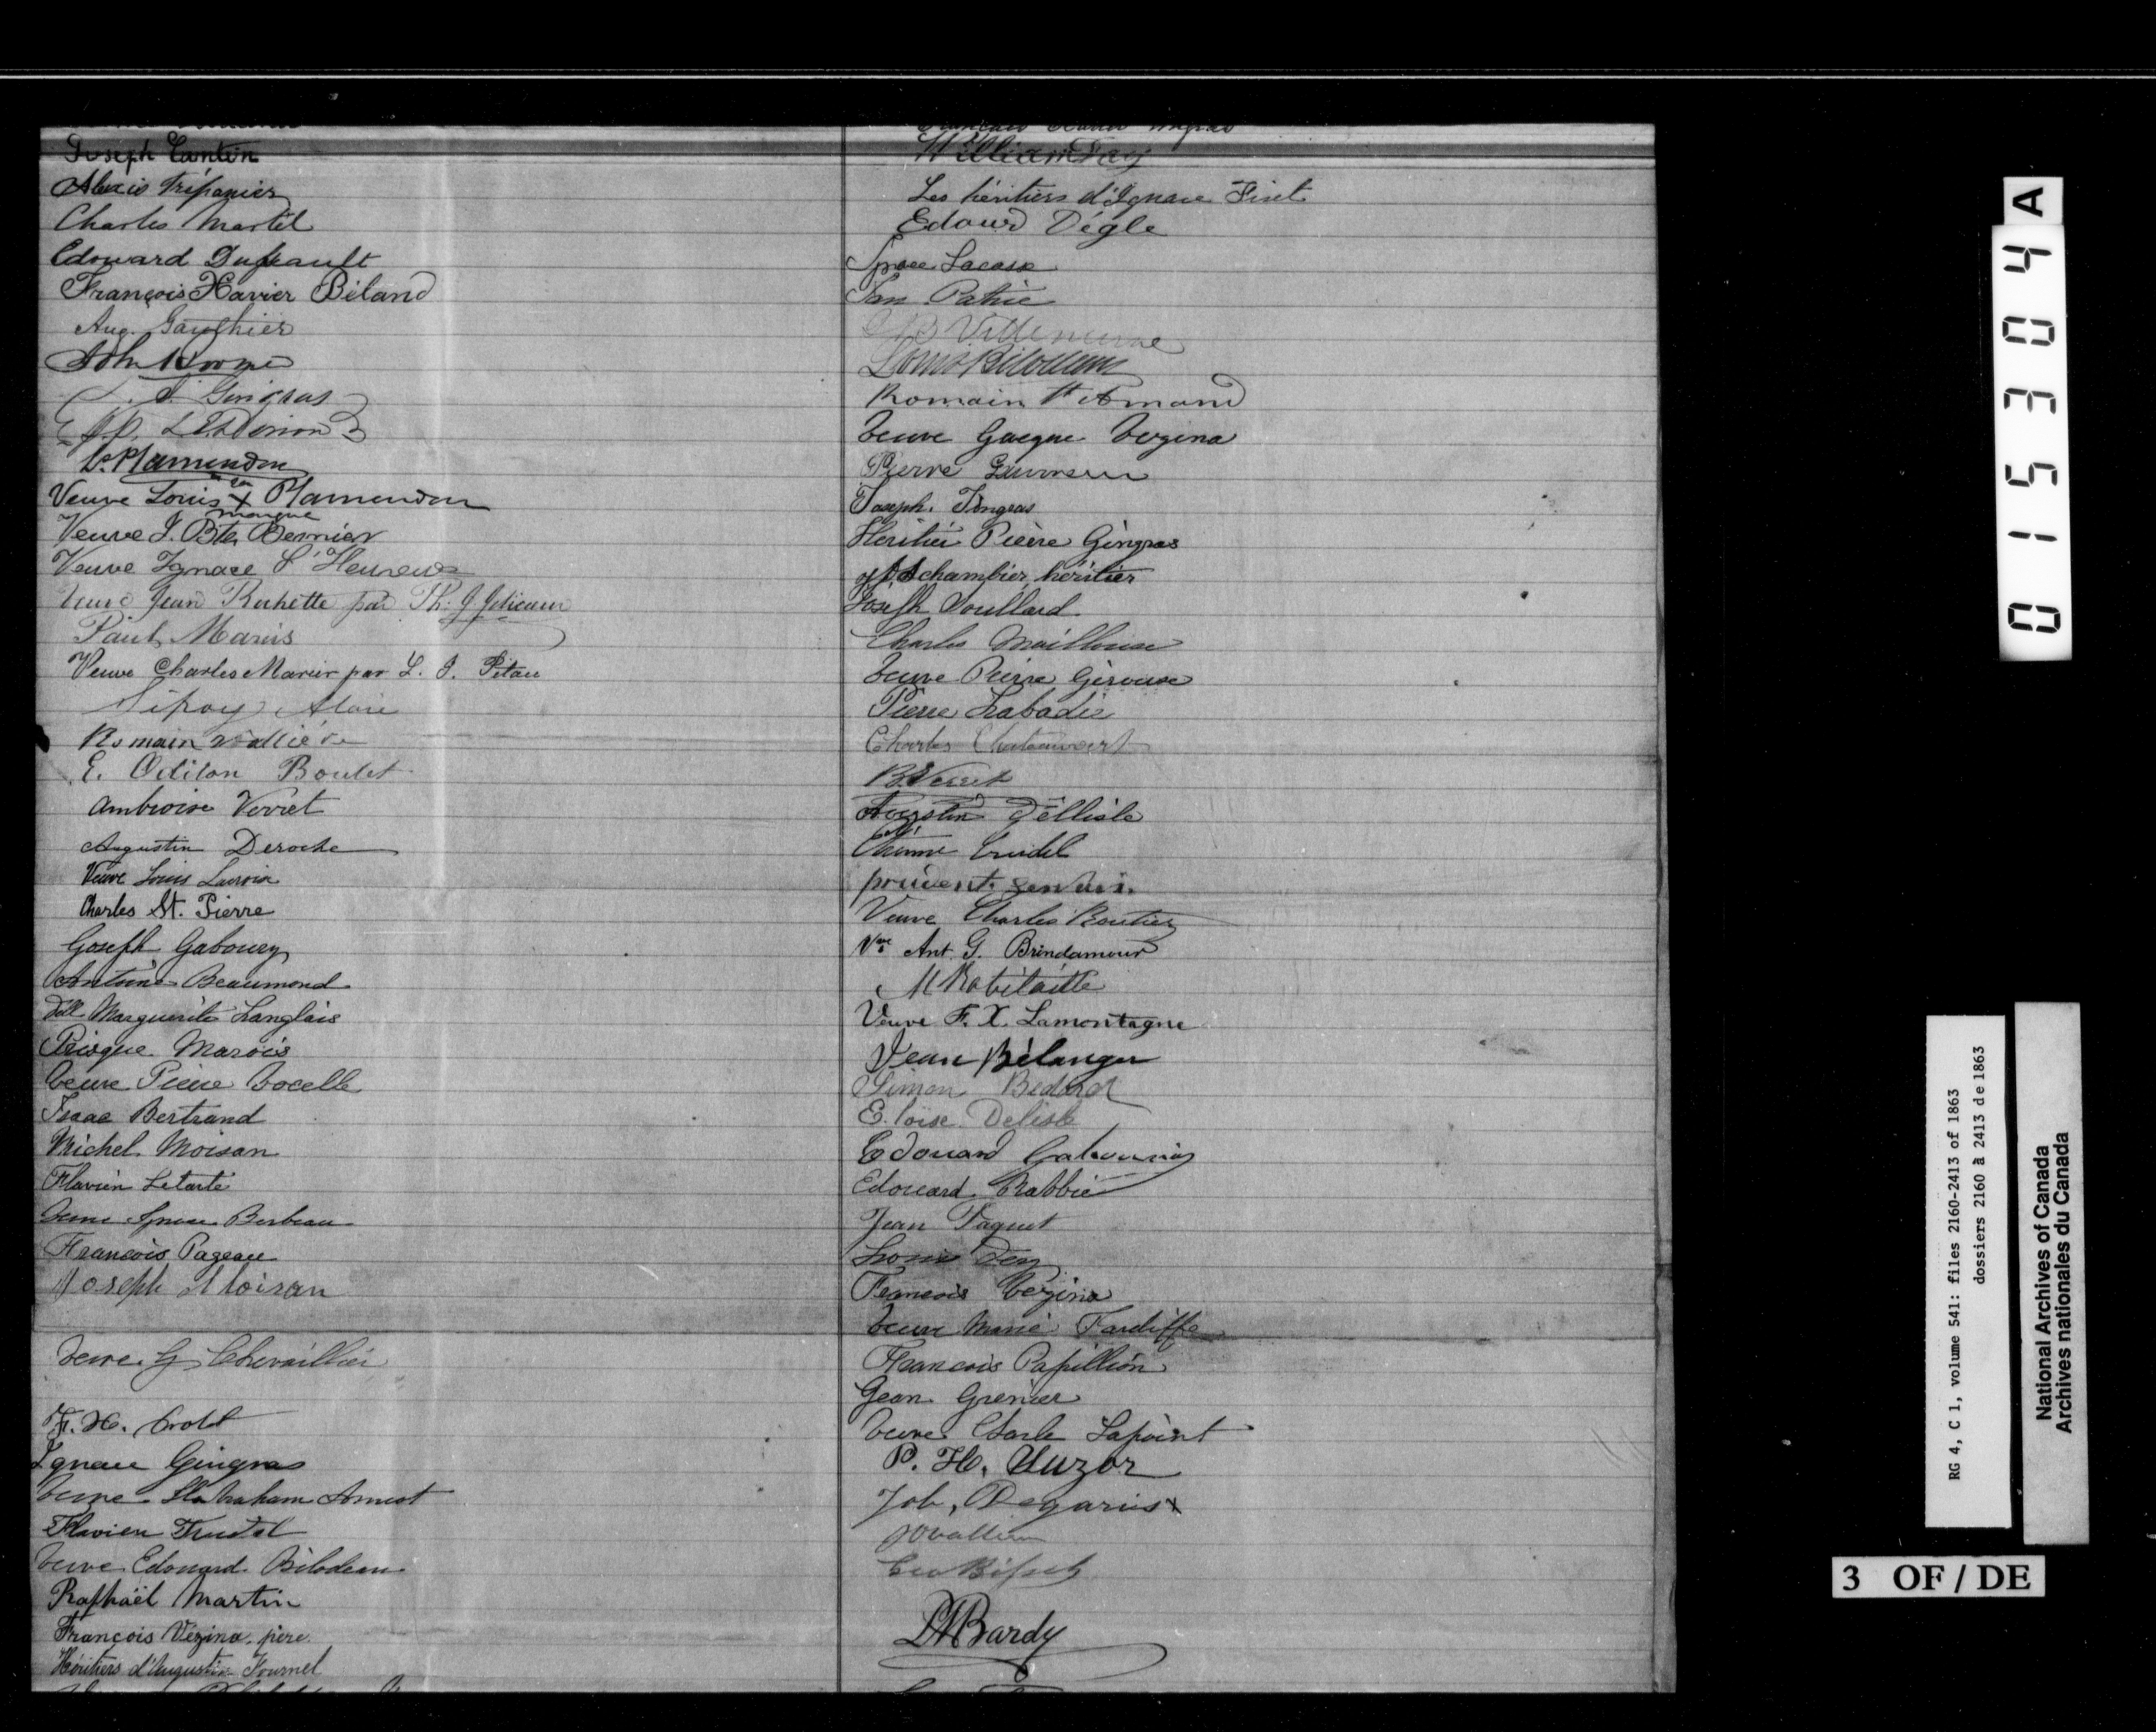 Joseph Cantin
Alexis Trépanier
Charles Martel
Edouard Dupeault
François Xavier Béland
Aug. Gauthier
John Roome
Gingras
L. Plamondon
Veuve Louis X Plamondon
sa
marque
Veuve J. Bte Bernier
Veuve Ignace L'Heureux
Veuve Jean Rochette par Th. J.
Paul Marois
Veuve Charles Marier par L. J. Piteau
Alain
Romain Vallière
E. Odilon Boulet
Ambroise Verret
Augustin Deroche
Veuve Louis Lacroix
Charles St. Pierre
Goseph Gaboury
Antoine Beaumond
Dlle Marguerite Langlais
Prisque Marois
Veuve Pierre Vocelle
Isaac Bertrand
Michel Moisan
Flavien Letarte
Veuve Ignace Barbeau
François Pageau
Joseph Moisan
Veuve G Chevaillier
F. X. Drolet
Ignace Gingras
Veuve Abraham Amiot
Flavien Trudel
Veuve Edouard Bilodeau
Raphaël Martin
François Vézina, père
Héritiers d'Augustin Fournel
William Fay
Les héritiers d'Ignace Fiset
Edourd Dégle
Ignace Lacasse
Patrie
Villeneuve
Louis Bilodeau
Romain St Amand
Veuve Gacque Vezina
Pierre Gauvreau
Joseph Gingras
Heritier Pierre Gingras
héritier
Joseph Soullard
Charles Mailloux
Veuve Pierre Gervaise
Pierre Labadie
Charles Chateauvert
B. Verret
Augustin Dellisle
Trudel
Veuve Charles Routier
Vve Ant. G. Brindamour
M Robitaille
Veuve F. X. Lamontagne
Jean Bélanger
Simon Bedard
E. loise Delisle
Edouard Gaboury
Edouard Rabbie
Jean Paquet
Louis Dery
Francois Vezina
Veuve Marie Tardiffe
Francois Papillion
Gean Grenier
Veuve Charle Lapoint
P. H. Suzor
Job, Degaris X
PMBardy
0 1 5 3 0 4 A
RG 4, C 1, volume 541: files 2160-2413 of 1863
dossiers 2160 à 2413 de 1863
National Archives of Canada
Archives nationales du Canada
3 OF / DE